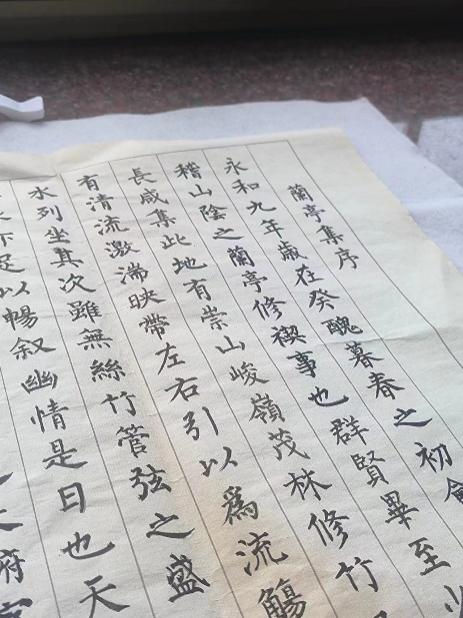 蘭亭集序
永和九年歲在癸醜暮春之初會
稽山陰之蘭亭修禊事也群賢畢至少
長咸集此地有崇山峻嶺茂林修竹
有清流激湍映帶左右引以爲流觴
水列坐其次雖無絲竹管弦之盛
足以暢叙幽情是日也天